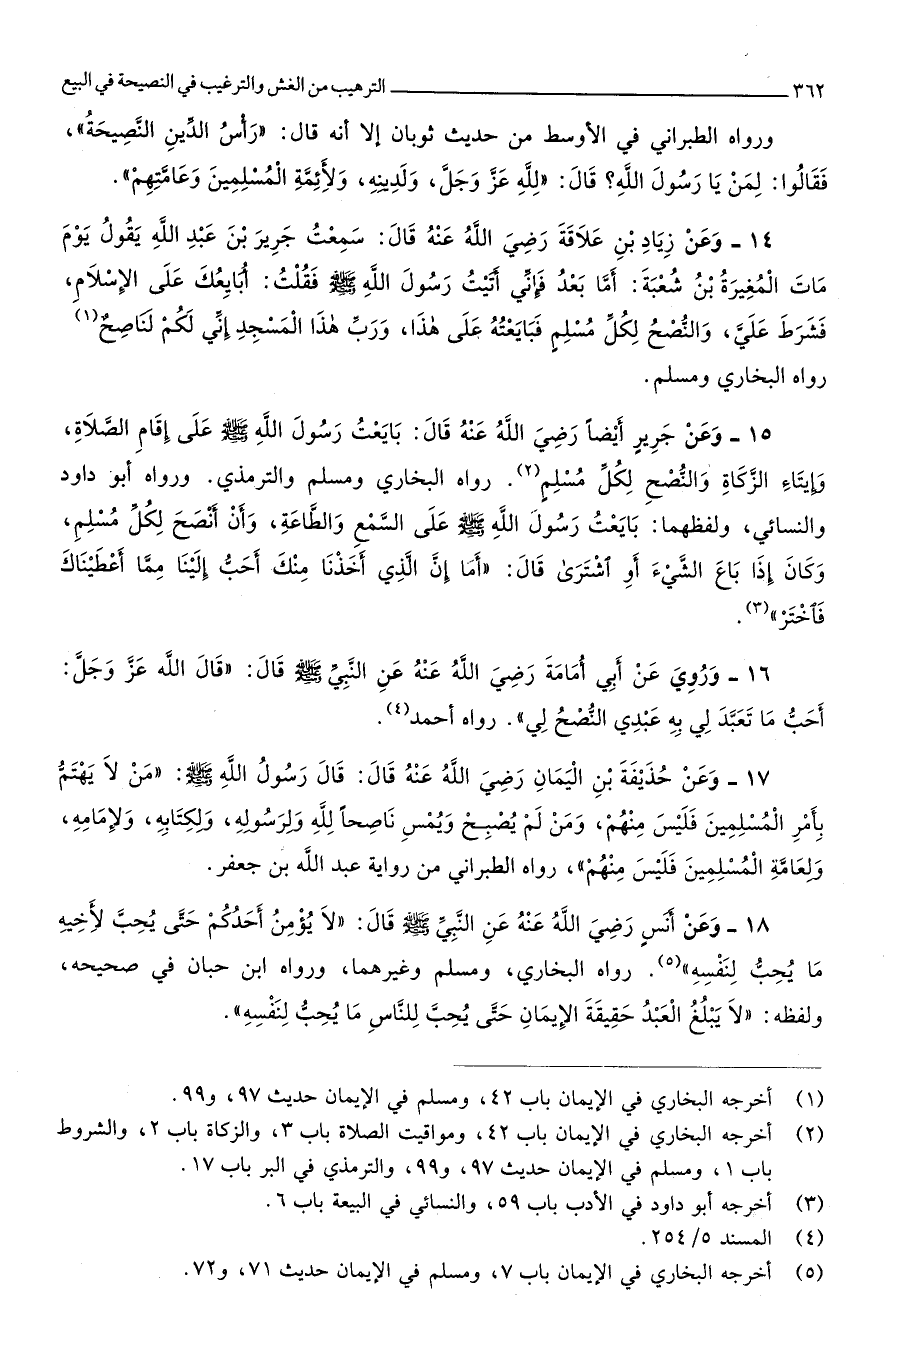 ٣٦٢ ــــــــــــــــــــــــــــــــ الترهيب من الغش والترغيب في النصيحة في البيع
ورواه الطبراني في الأوسط من حديث ثوبان إلا أنه قال: «رَأْسُ الدِّينِ النَّصِيحَةُ»،
فَقَالُوا: لِمَنْ يَا رَسُولَ اللَّهِ؟ قَالَ: «لِلَّهِ عَزَّ وَجَلَّ، وَلَدِينِهِ، وَلأَئِمَّةِ الْمُسْلِمِينَ وَعَامَّتِهِمْ».
١٤ ـ وَعَنْ زِيَادِ بْنِ عَلاَقَةَ رَضِيَ اللَّهُ عَنْهُ قَالَ: سَمِعْتُ جَرِيرَ بْنَ عَبْدِ اللَّهِ يَقُولُ يَوْمَ
مَاتَ الْمُغِيرَةُ بْنُ شُعْبَةَ: أَمَّا بَعْدُ فَإِنِّي أَتَيْتُ رَسُولَ اللَّهِ ﷺ فَقُلْتُ: أُبَايِعُكَ عَلَى الإِسْلاَمِ،
فَشَرَطَ عَلَيَّ، وَالنُّصْحُ لِكُلِّ مُسْلِمٍ فَبَايَعْتُهُ عَلَى هٰذَا، وَرَبِّ هٰذَا الْمَسْجِدِ إِنِّي لَكُمْ لَنَاصِحٌ(١)
رواه البخاري ومسلم.
١٥ ـ وَعَنْ جَرِيرٍ أَيْضاً رَضِيَ اللَّهُ عَنْهُ قَالَ: بَايَعْتُ رَسُولَ اللَّهِ ﷺ عَلَى إِقَامِ الصَّلاَةِ،
وَإِيتَاءِ الزَّكَاةِ وَالنُّصْحِ لِكُلِّ مُسْلِمٍ(٢). رواه البخاري ومسلم والترمذي. ورواه أبو داود
والنسائي، ولفظهما: بَايَعْتُ رَسُولَ اللَّهِ ﷺ عَلَى السَّمْعِ وَالطَّاعَةِ، وَأَنْ أَنْصَحَ لِكُلِّ مُسْلِمٍ،
وَكَانَ إِذَا بَاعَ الشَّيْءَ أَوِ ٱشْتَرَىٰ قَالَ: «أَمَا إِنَّ الَّذِي أَخَذْنَا مِنْكَ أَحَبُّ إِلَيْنَا مِمَّا أَعْطَيْنَاكَ
فَٱخْتَرْ»(٣).
١٦ ـ وَرُوِيَ عَنْ أَبِي أُمَامَةَ رَضِيَ اللَّهُ عَنْهُ عَنِ النَّبِيِّ ﷺ قَالَ: «قَالَ اللَّه عَزَّ وَجَلَّ:
أَحَبُّ مَا تَعَبَّدَ لِي بِهِ عَبْدِي النُّصْحُ لِي». رواه أحمد(٤).
١٧ ـ وَعَنْ حُذَيْفَةَ بْنِ الْيَمَانِ رَضِيَ اللَّهُ عَنْهُ قَالَ: قَالَ رَسُولُ اللَّهِ ﷺ: «مَنْ لاَ يَهْتَمُّ
بِأَمْرِ الْمُسْلِمِينَ فَلَيْسَ مِنْهُمْ، وَمَنْ لَمْ يُصْبِحْ وَيُمْسِ نَاصِحاً لِلَّهِ وَلِرَسُولِهِ، وَلِكِتَابِهِ، وَلإِمَامِهِ،
وَلِعَامَّةِ الْمُسْلِمِينَ فَلَيْسَ مِنْهُمْ»، رواه الطبراني من رواية عبد اللَّه بن جعفر.
١٨ ـ وَعَنْ أَنَسٍ رَضِيَ اللَّهُ عَنْهُ عَنِ النَّبِيِّ ﷺ قَالَ: «لاَ يُؤْمِنُ أَحَدُكُمْ حَتَّى يُحِبَّ لأَخِيهِ
مَا يُحِبُّ لِنَفْسِهِ»(٥). رواه البخاري، ومسلم وغيرهما، ورواه ابن حبان في صحيحه،
ولفظه: «لاَ يَبْلُغُ الْعَبْدُ حَقِيقَةَ الإِيمَانِ حَتَّى يُحِبَّ لِلنَّاسِ مَا يُحِبُّ لِنَفْسِهِ».
(١) أخرجه البخاري في الإيمان باب ٤٢، ومسلم في الإيمان حديث ٩٧، و٩٩.
(٢) أخرجه البخاري في الإيمان باب ٤٢، ومواقيت الصلاة باب ٣، والزكاة باب ٢، والشروط
باب ١، ومسلم في الإيمان حديث ٩٧، و٩٩، والترمذي في البر باب ١٧.
(٣) أخرجه أبو داود في الأدب باب ٥٩، والنسائي في البيعة باب ٦.
(٤) المسند ٥/ ٢٥٤.
(٥) أخرجه البخاري في الإيمان باب ٧، ومسلم في الإيمان حديث ٧١، و٧٢.